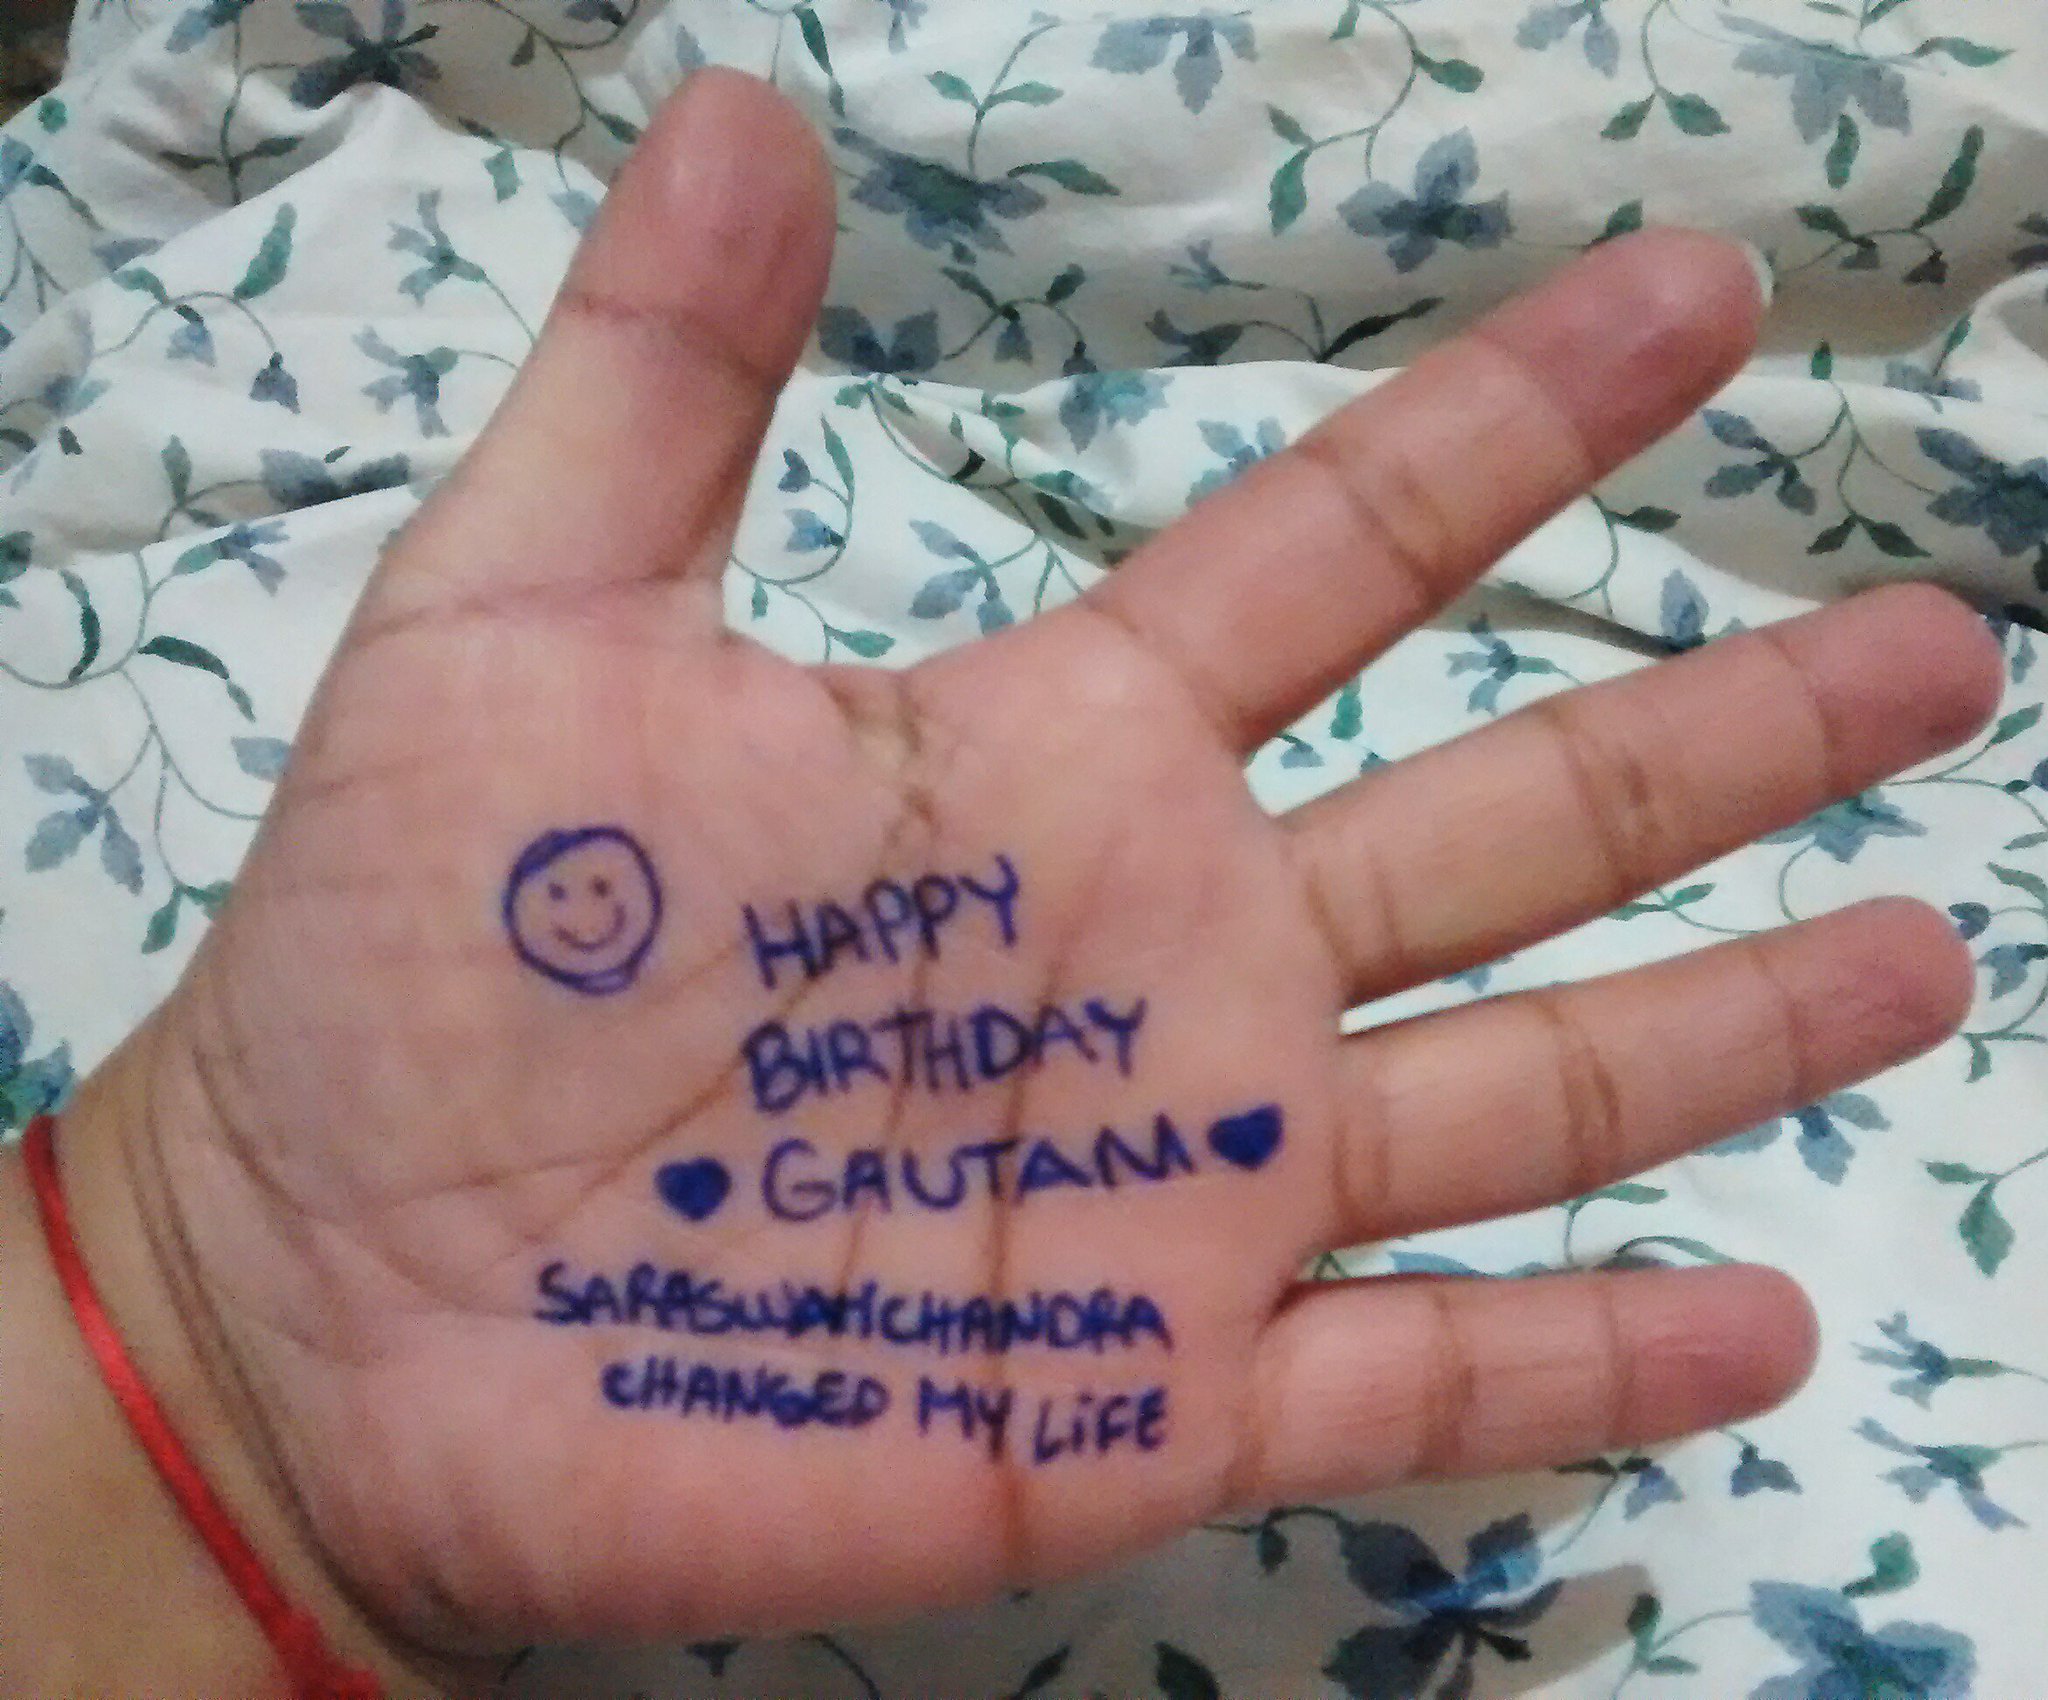 HAPPY
BIRTHDAY
GAUTAM
SARASWATICHANDRA
CHANGED MY LiFE